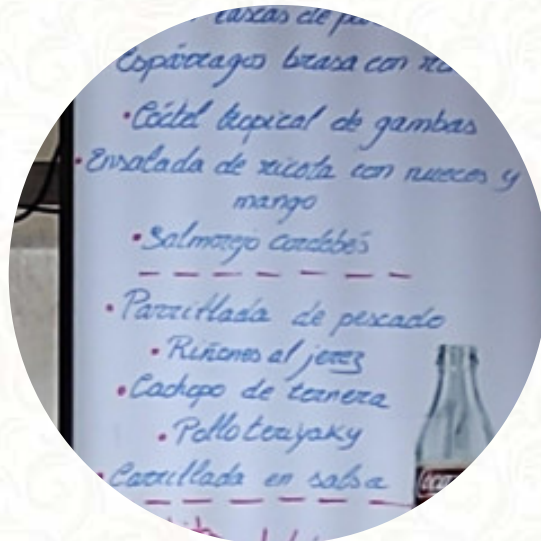 cascas de
Espárragos brasa con
•Cóctel tropical de gambas
•Ensalada de ricota con nueces y
mango
•Salmorejo cordobés
•Parrillada de pescado
•Riñones al jerez
•Cachopo de ternera
•Pollo teriyaky
•Carrillada en salsa